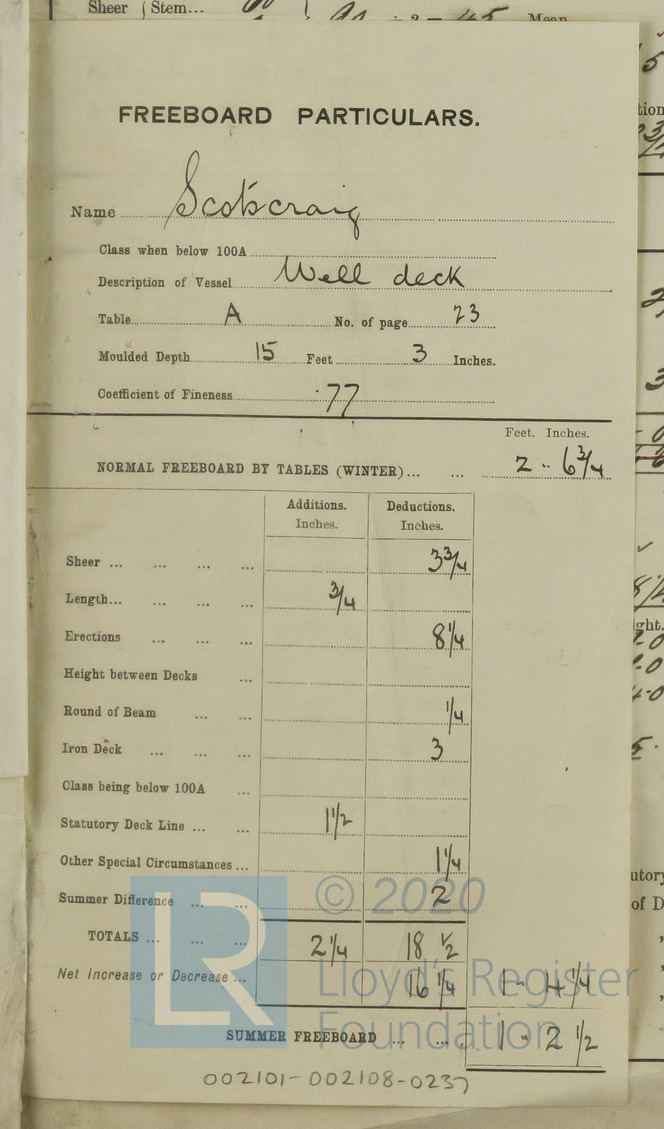 Sheer { Stem...
Mean
FREEBOARD PARTICULARS.
Name Scotscraig
Class when below 100A
Description of Vessel Well deck
Table A No. of page 23
Moulded Depth 15 Feet 3 Inches.
Coefficient of Fineness ·77
Feet. Inches.
NORMAL FREEBOARD BY TABLES (WINTER)... ... 2 - 6 3/4
Additions. Deductions.
Inches. Inches.
Sheer ... ... ... ... 3 3/4
Length... ... ... ... 3/4
Erections ... ... ... 8 1/4
Height between Decks ...
Round of Beam ... ... 1/4
Iron Deck ... ... ... 3
Class being below 100A ...
Statutory Deck Line ... ... 1 1/2
Other Special Circumstances ... 1 1/4
Summer Difference ... ... 2
TOTALS ... ... ... 2 1/4 18 1/2
Net Increase or Decrease ... 16 1/4 1 - 4 1/4
SUMMER FREEBOARD ... ... 1 - 2 1/2
002101-002108-0237
LR
© 2020
Lloyd's Register
Foundation